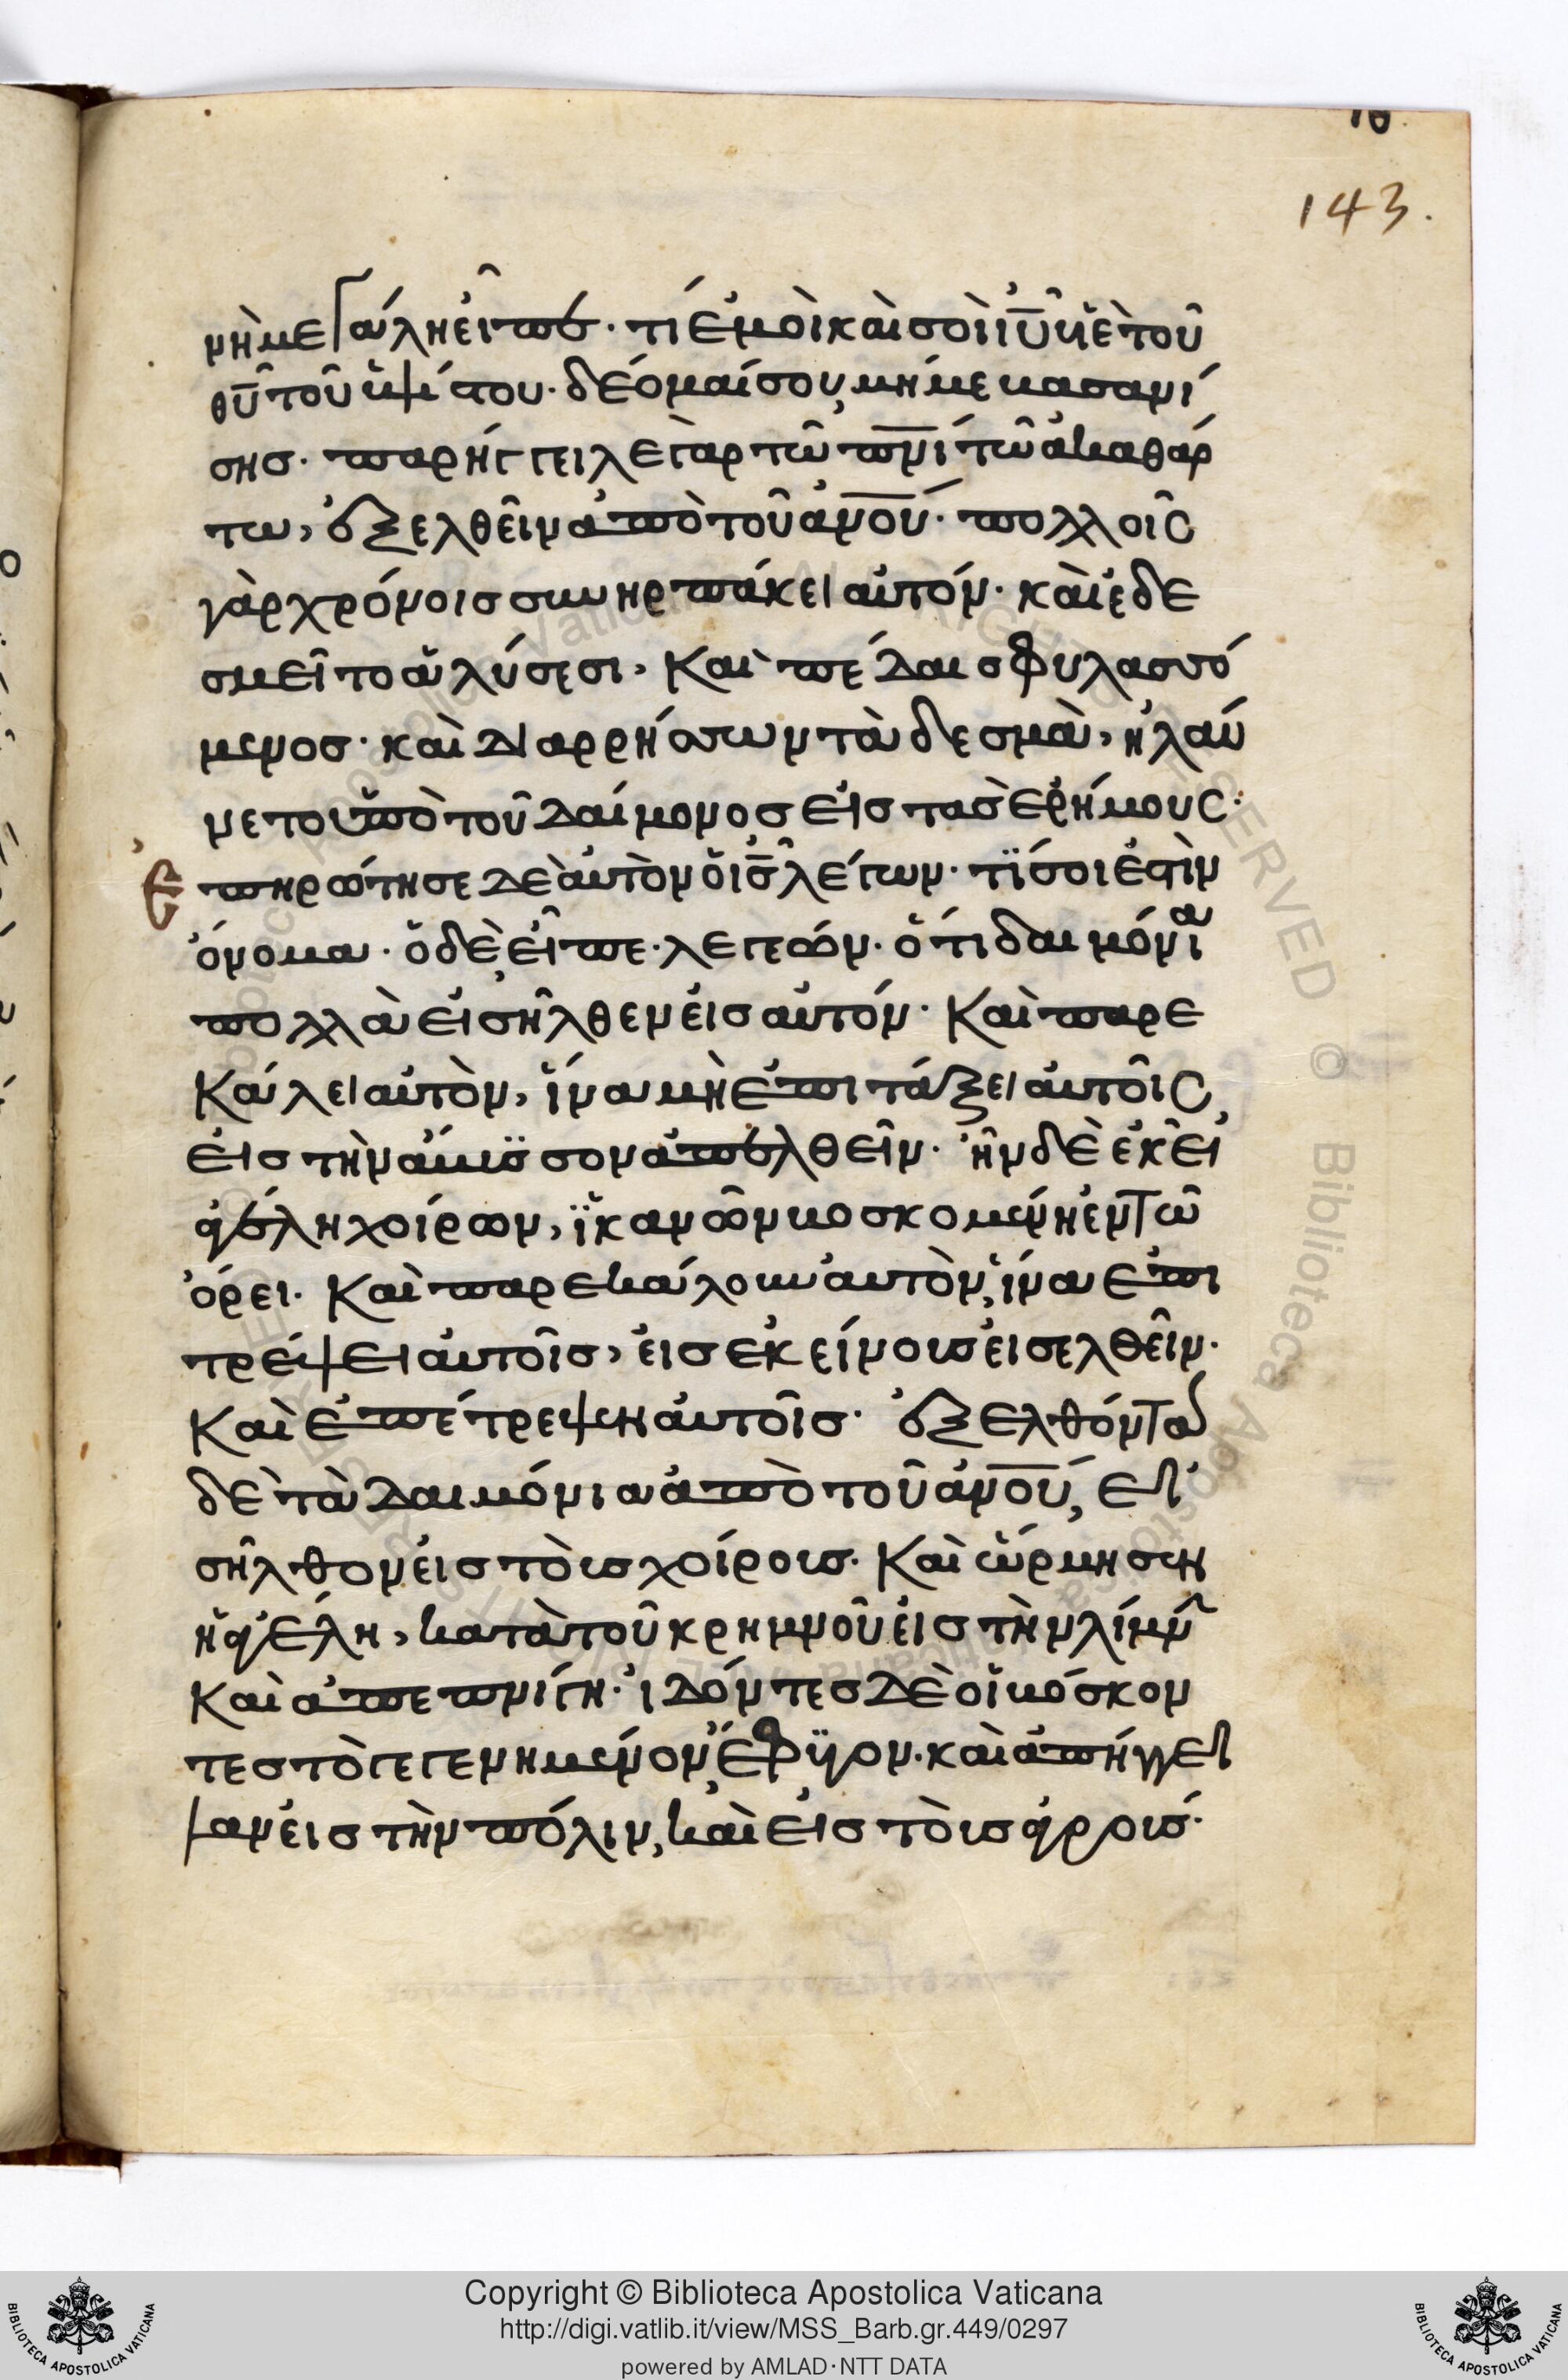 ιθ
143.
μὴ μεγάλη εἶπε· τί ἐμοὶ καὶ σοὶ ἰῦ υἱὲ τοῦ
θῦ τοῦ ὑψίστου· δέομαί σου, μή με βασανί
σης· παρήγγειλε γὰρ τῶ πνί τῶ ἀκαθάρ
τω, ἐξελθεῖν ἀπὸ τοῦ ἀνου· πολλοῖς
γὰρ χρόνοις συνηρπάκει αὐτόν· καὶ ἐδε
σμεῖτο ἁλύσεσι, καὶ πέδαις φυλασσό
μενος· καὶ διαρρήσσων τὰ δεσμὰ, ἠλαύ
νετο ὑπὸ τοῦ δαίμονος εἰς τὰς ἐρήμους·
Ἐπηρώτησε δὲ αὐτὸν ὁ ις λέγων· τί σοι ἐστὶν
ὄνομα· ὁ δὲ, εἶπε· λεγεών· ὅτι δαιμόνια
πολλὰ εἰσῆλθεν εἰς αὐτόν· καὶ παρε
κάλει αὐτὸν, ἵνα μὴ ἐπιτάξει αὐτοῖς,
εἰς τὴν ἄβυσσον ἀπελθεῖν· ἦν δὲ ἐκεῖ
ἀγέλη χοίρων, ἱκανῶν βοσκομένη ἐν τῶ
ὄρει· καὶ παρεκάλουν αὐτὸν, ἵνα ἐπι
τρέψει αὐτοῖς, εἰς ἐκείνους εἰσελθεῖν·
καὶ ἐπέτρεψεν αὐτοῖς· ἐξελθόντα
δὲ τὰ δαιμόνια ἀπὸ τοῦ ἀνου, εἰ
σῆλθον εἰς τοὺς χοίρους· καὶ ὥρμησεν
ἡ ἀγέλη, κατὰ τοῦ κρημνοῦ εἰς τὴν λίμνην
καὶ ἀπεπνίγη· ἰδόντες δὲ οἱ βόσκον
τες τὸ γεγενημένον, ἔφυγον· καὶ ἀπήγγει
λαν εἰς τὴν πόλιν, καὶ εἰς τοὺς ἀγρούς·
Copyright © Biblioteca Apostolica Vaticana
http://digi.vatlib.it/view/MSS_Barb.gr.449/0297
powered by AMLAD·NTT DATA
BIBLIOTECA APOSTOLICA VATICANA
BIBLIOTECA APOSTOLICA VATICANA